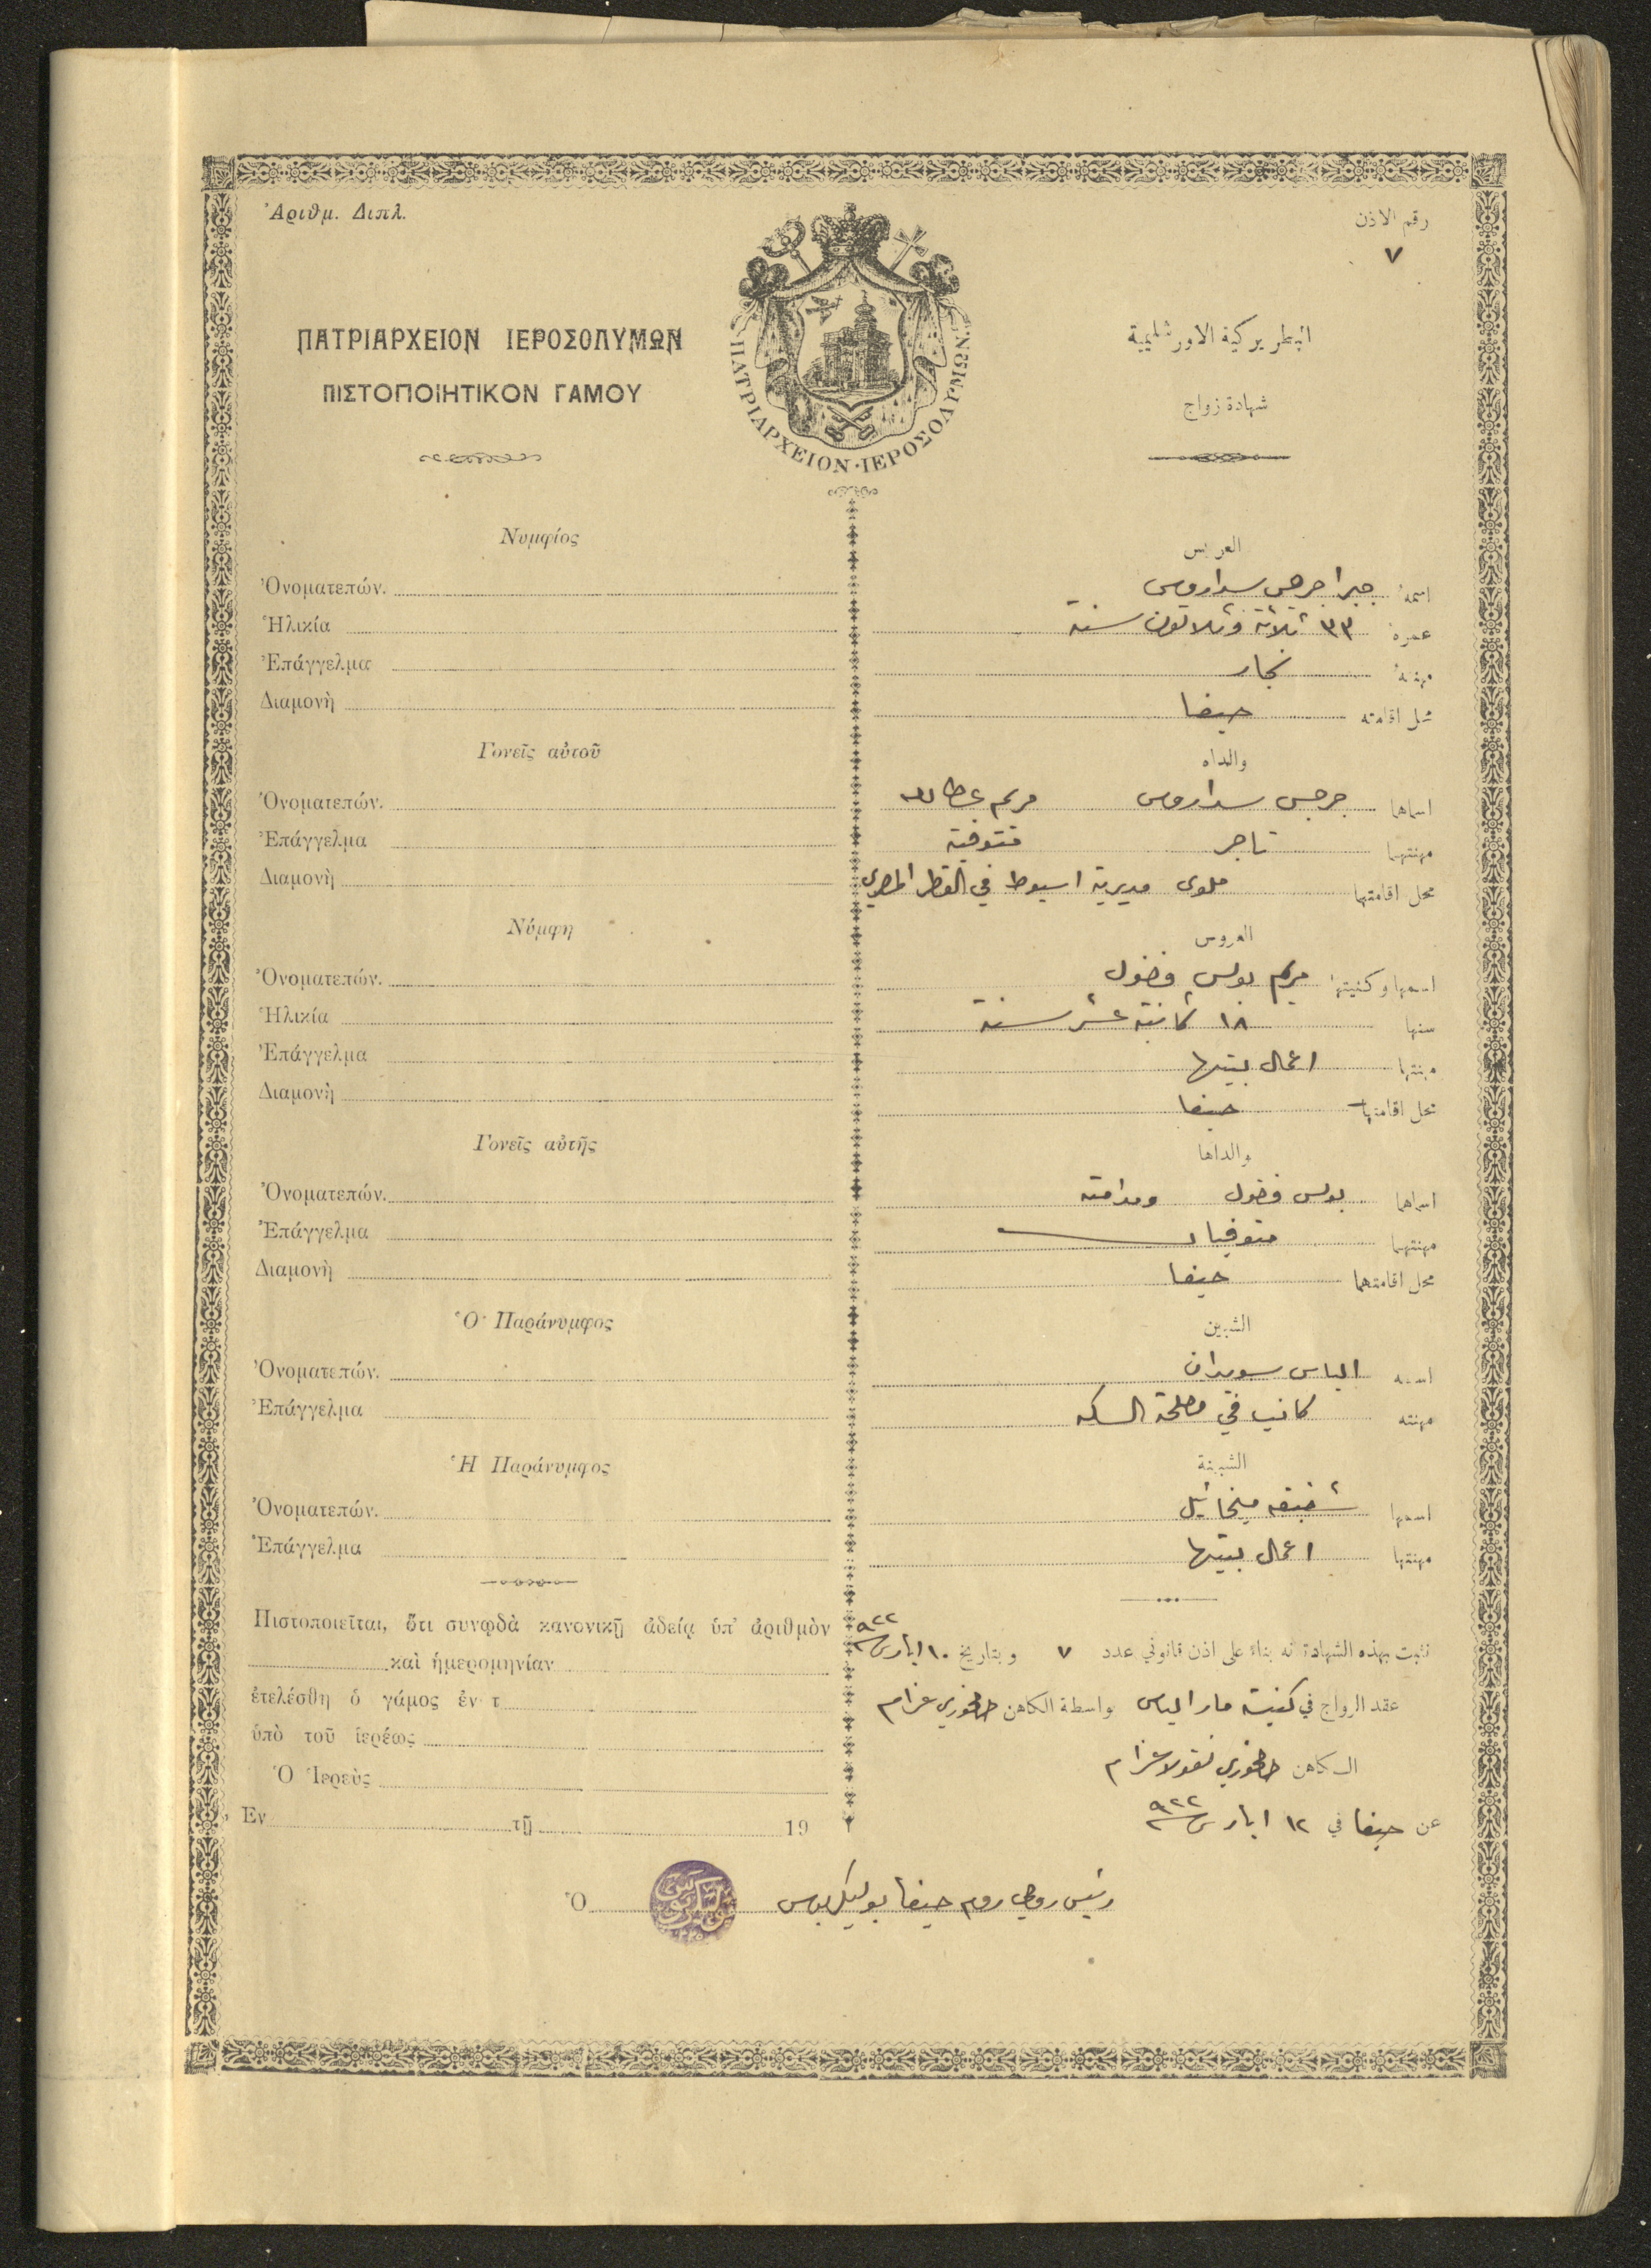 Ἀριθμ. Διπλ.
رقم الاذن
٧
ΠΑΤΡΙΑΡΧΕΙΟΝ ΙΕΡΟΣΟΛΥΜΩΝ
البطريركية الاورشليمية
ΠΙΣΤΟΠΟΙΗΤΙΚΟΝ ΓΑΜΟΥ
شهادة زواج
ΠΑΤΡΙΑΡΧΕΙΟΝ·ΙΕΡΟΣΟΛΥΜΩΝ.
Νυμφίος
العريس
Ὀνοματεπών.
اسمه جبرا جرجس سدراوس
Ἡλικία
عمره ٣٣ ثلاثة وثلاثون سنة
Ἐπάγγελμα
مهنته نجار
Διαμονὴ
محل اقامته حيفا
Γονεῖς αὐτοῦ
والداه
Ὀνοματεπών.
اسماهما جرجس سدراوس مريم عطالله
Ἐπάγγελμα
مهنتهما تاجر متوفية
Διαμονὴ
محل اقامتهما ملوى مديرية اسيوط في القطر المصري
Νύμφη
العروس
Ὀνοματεπών.
اسمها وكنيتها مريم بولس فضول
Ἡλικία
سنها ١٨ ثمانية عشر سنة
Ἐπάγγελμα
مهنتها اعمال بيتها
Διαμονὴ
محل اقامتها حيفا
Γονεῖς αὐτῆς
والداها
Ὀνοματεπών.
اسماهما بولس فضول
Ἐπάγγελμα
مهنتهما متوفيان
Διαμονὴ
محل اقامتهما حيفا
Ὁ Παράνυμφος
الشبين
Ὀνοματεπών.
اسمه الياس سويدان
Ἐπάγγελμα
مهنته كاتب في مصلحة السكه
Ἡ Παράνυμφος
الشبينة
Ὀνοματεπών.
اسمها شفيقه ميخائيل
Ἐπάγγελμα
مهنتها اعمال بيتها
Πιστοποιεῖται, ὅτι συνῳδὰ κανονικῇ ἀδείᾳ ὑπ' ἀριθμὸν
نثبت بهذه الشهادة انه بناء على اذن قانوني عدد ٧ و بتاريخ ١٠ ايار سنة ٩٢٢
καὶ ἡμερομηνίαν
ἐτελέσθη ὁ γάμος ἐν τ
عقد الزواج في كنيسة مار الياس بواسطة الكاهن الخوري عزام
ὑπὸ τοῦ ἱερέως
Ὁ Ἱερεὺς
الكاهن الخوري نقولا عزام
Ἐν τῇ 19
عن حيفا في ١٢ ايار سنة ٩٢٢
Ὁ
رئيس روحي روم حيفا